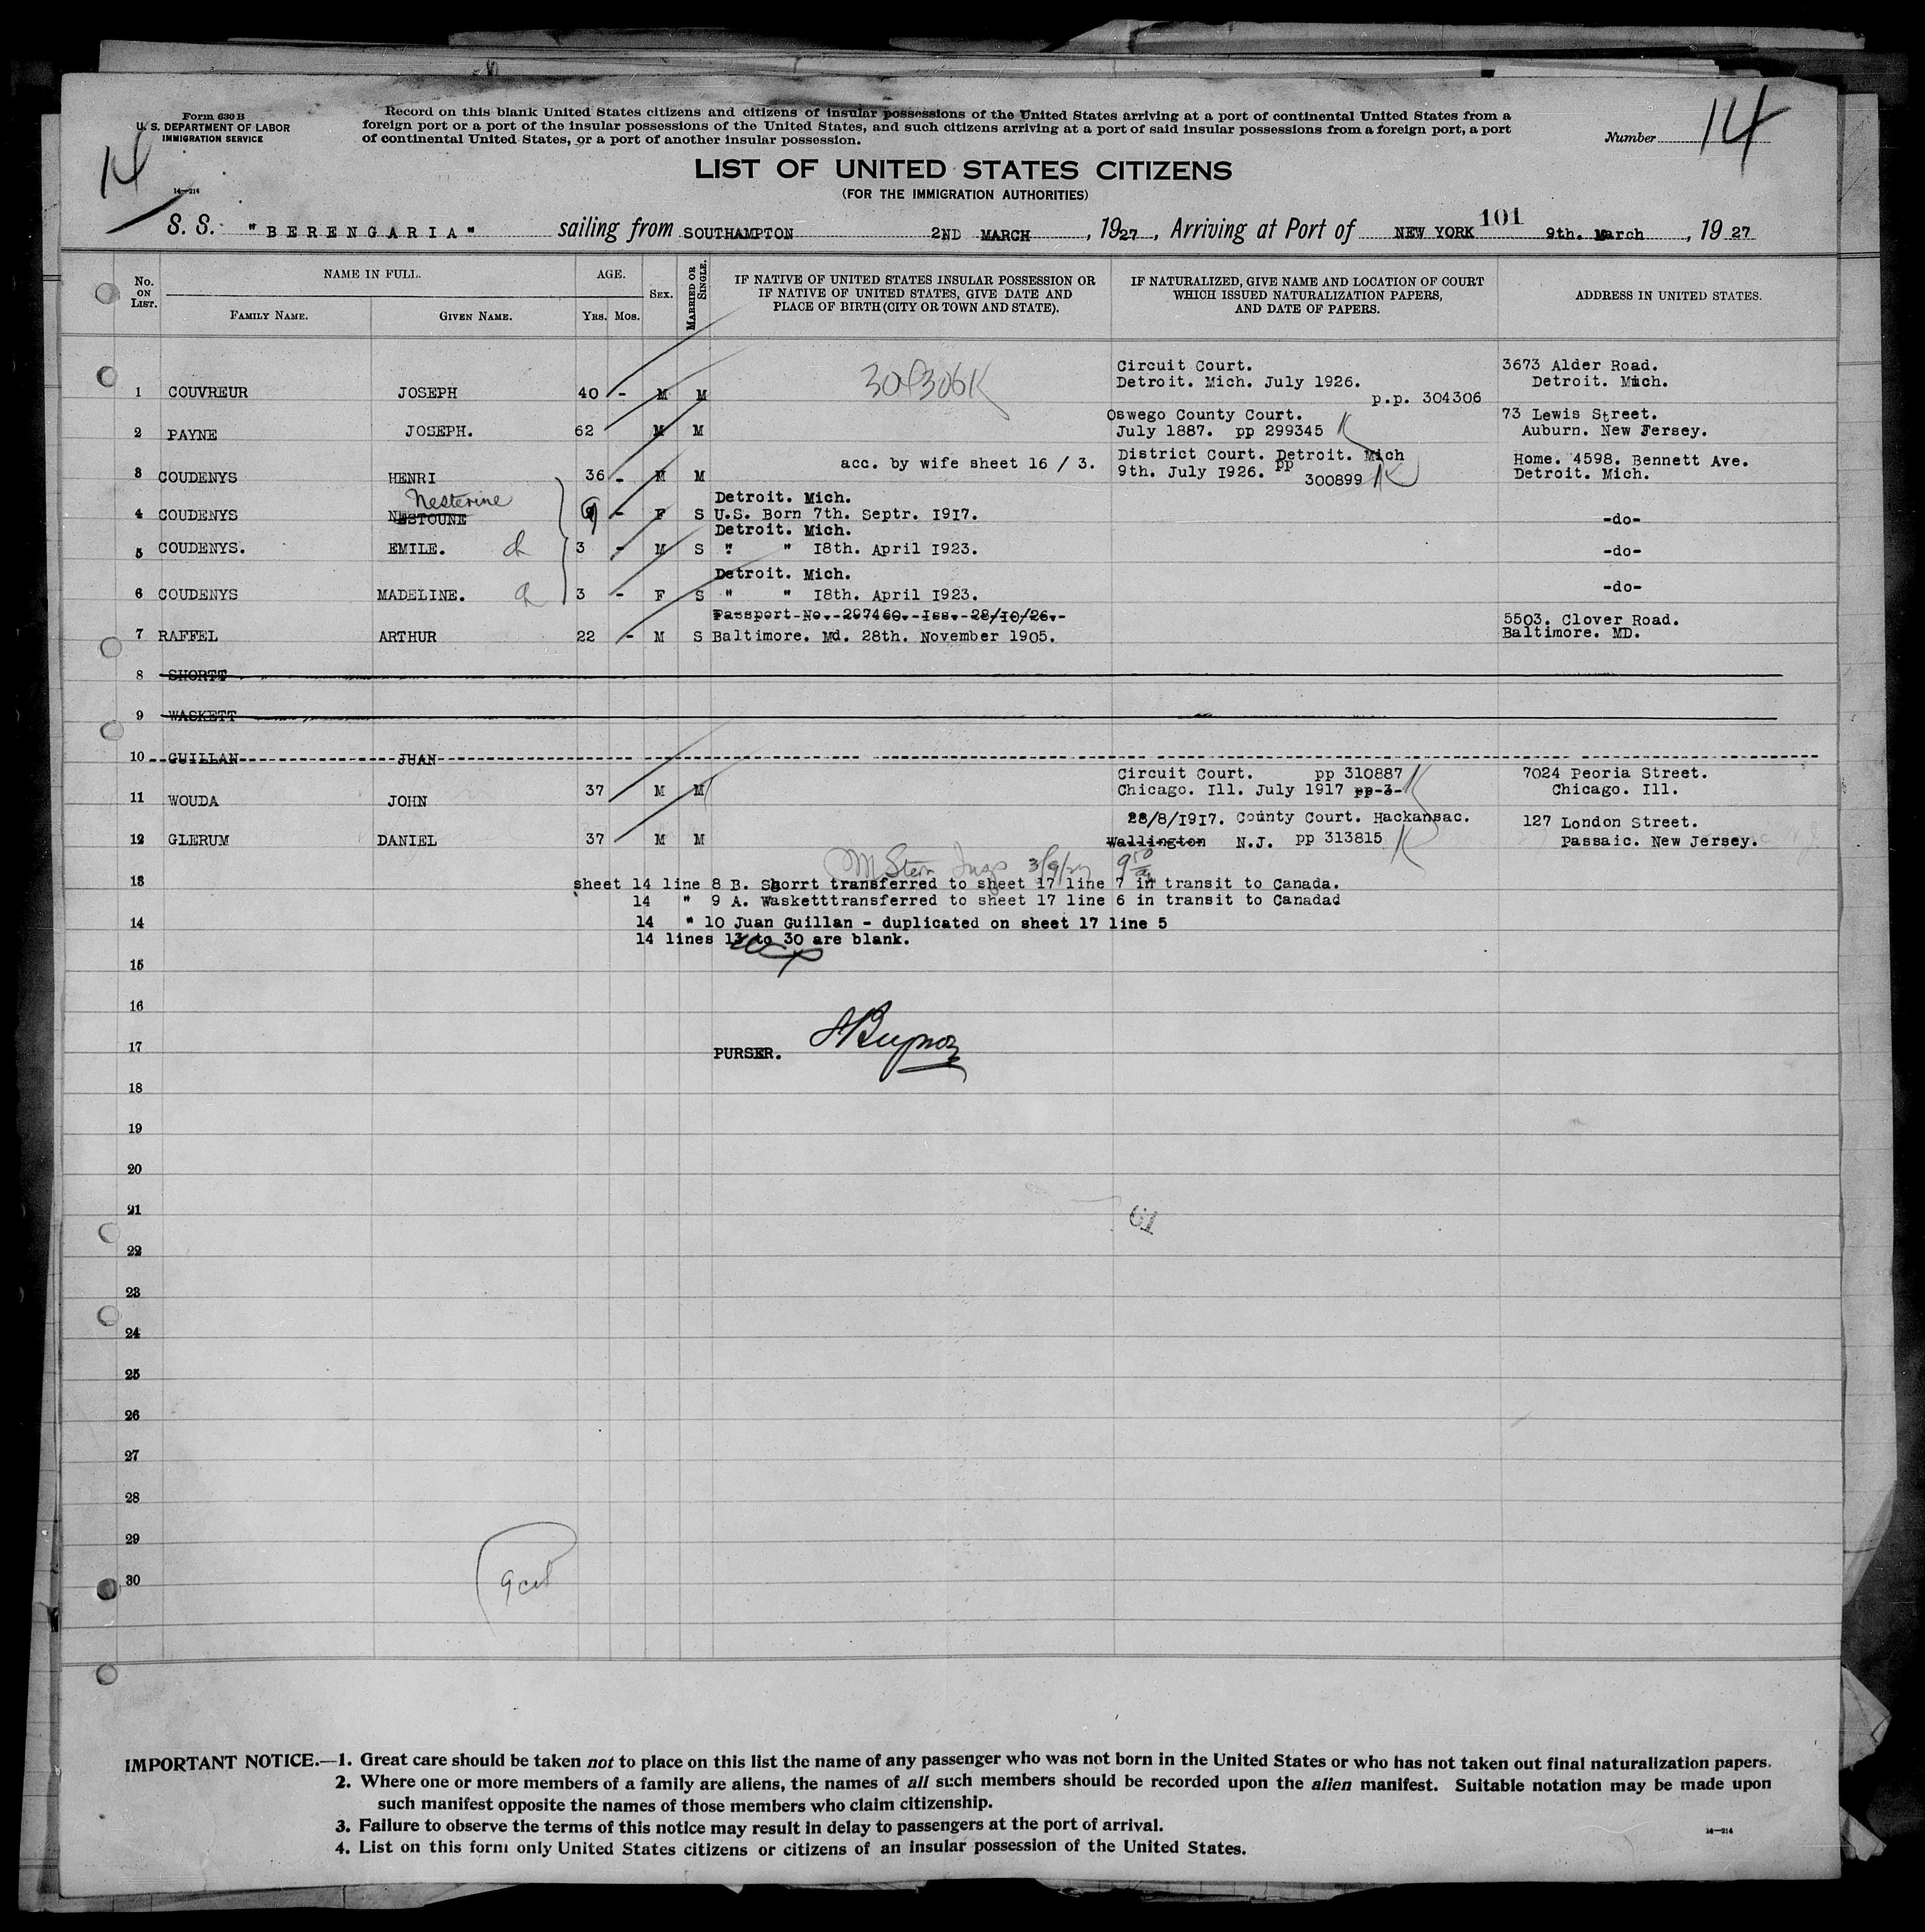 Form 630 B
U. S. DEPARTMENT OF LABOR
IMMIGRATION SERVICE
14
14—214
Record on this blank United States citizens and citizens of insular possessions of the United States arriving at a port of continental United States from a
foreign port or a port of the insular possessions of the United States, and such citizens arriving at a port of said insular possessions from a foreign port, a port
of continental United States, or a port of another insular possession.
Number 14
LIST OF UNITED STATES CITIZENS
(FOR THE IMMIGRATION AUTHORITIES)
S. S. "BERENGARIA" sailing from SOUTHAMPTON 2ND MARCH, 1927, Arriving at Port of NEW YORK 101 9th. March, 19 27
No. ON LIST. NAME IN FULL. FAMILY NAME. GIVEN NAME. AGE. YRS. MOS. SEX. MARRIED OR SINGLE. IF NATIVE OF UNITED STATES INSULAR POSSESSION OR IF NATIVE OF UNITED STATES, GIVE DATE AND PLACE OF BIRTH (CITY OR TOWN AND STATE). IF NATURALIZED, GIVE NAME AND LOCATION OF COURT WHICH ISSUED NATURALIZATION PAPERS, AND DATE OF PAPERS. ADDRESS IN UNITED STATES.
Circuit Court. 3673 Alder Road.
304306K Detroit. Mich. July 1926. Detroit. Mich.
1 COUVREUR JOSEPH 40 - M M p.p. 304306
Oswego County Court. 73 Lewis Street.
2 PAYNE JOSEPH. 62 M M July 1887. pp 299345 K Auburn. New Jersey.
acc. by wife sheet 16 / 3. District Court. Detroit. Mich Home. 4598. Bennett Ave.
3 COUDENYS HENRI 36 - M M 9th. July 1926. pp 300899 K Detroit. Mich.
Nesterine Detroit. Mich.
4 COUDENYS NESTOUNE 9 - F S U.S. Born 7th. Septr. 1917. -do-
Detroit. Mich.
5 COUDENYS. EMILE. ch 3 - M S " " 18th. April 1923. -do-
Detroit. Mich.
6 COUDENYS MADELINE. ch 3 - F S " " 18th. April 1923. -do-
Passport No. 297460. Iss. 28/10/26. 5503. Clover Road.
7 RAFFEL ARTHUR 22 - M S Baltimore. Md. 28th. November 1905. Baltimore. MD.
8 SHORTT
9 WASKETT
10 GUILLAN JUAN
Circuit Court. pp 310887 K 7024 Peoria Street.
11 WOUDA JOHN 37 M M Chicago. Ill. July 1917 pp-3- Chicago. Ill.
28/8/1917. County Court. Hackansac. 127 London Street.
12 GLERUM DANIEL 37 M M Wallington N.J. pp 313815 K Passaic. New Jersey.
M Stern Insp 3/9/27
13 sheet 14 line 8 B. Shorrt transferred to sheet 17 line 7 in transit to Canada.
14 " 9 A. Wasketttransferred to sheet 17 line 6 in transit to Canadad
14 14 " 10 Juan Guillan - duplicated on sheet 17 line 5
14 lines 13 to 30 are blank.
15
16
17 PURSER.
18
19
20
21
61
22
23
24
25
26
27
28
29
30
IMPORTANT NOTICE.—1. Great care should be taken not to place on this list the name of any passenger who was not born in the United States or who has not taken out final naturalization papers.
2. Where one or more members of a family are aliens, the names of all such members should be recorded upon the alien manifest. Suitable notation may be made upon
such manifest opposite the names of those members who claim citizenship.
3. Failure to observe the terms of this notice may result in delay to passengers at the port of arrival.
14—214
4. List on this form only United States citizens or citizens of an insular possession of the United States.